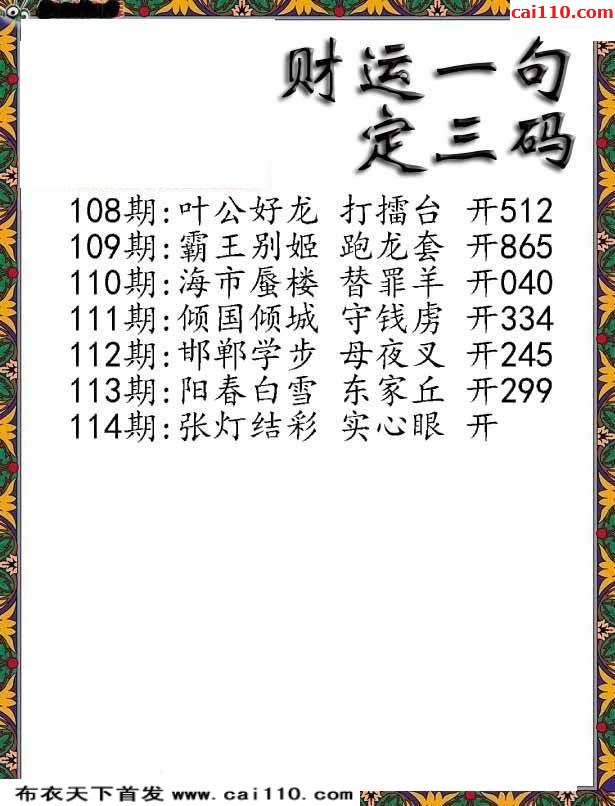 cai110.com
财运一句
定三码
108期:叶公好龙 打擂台 开512
109期:霸王别姬 跑龙套 开865
110期:海市蜃楼 替罪羊 开040
111期:倾国倾城 守钱虏 开334
112期:邯郸学步 母夜叉 开245
113期:阳春白雪 东家丘 开299
114期:张灯结彩 实心眼 开
布衣天下首发 www.cai110.com